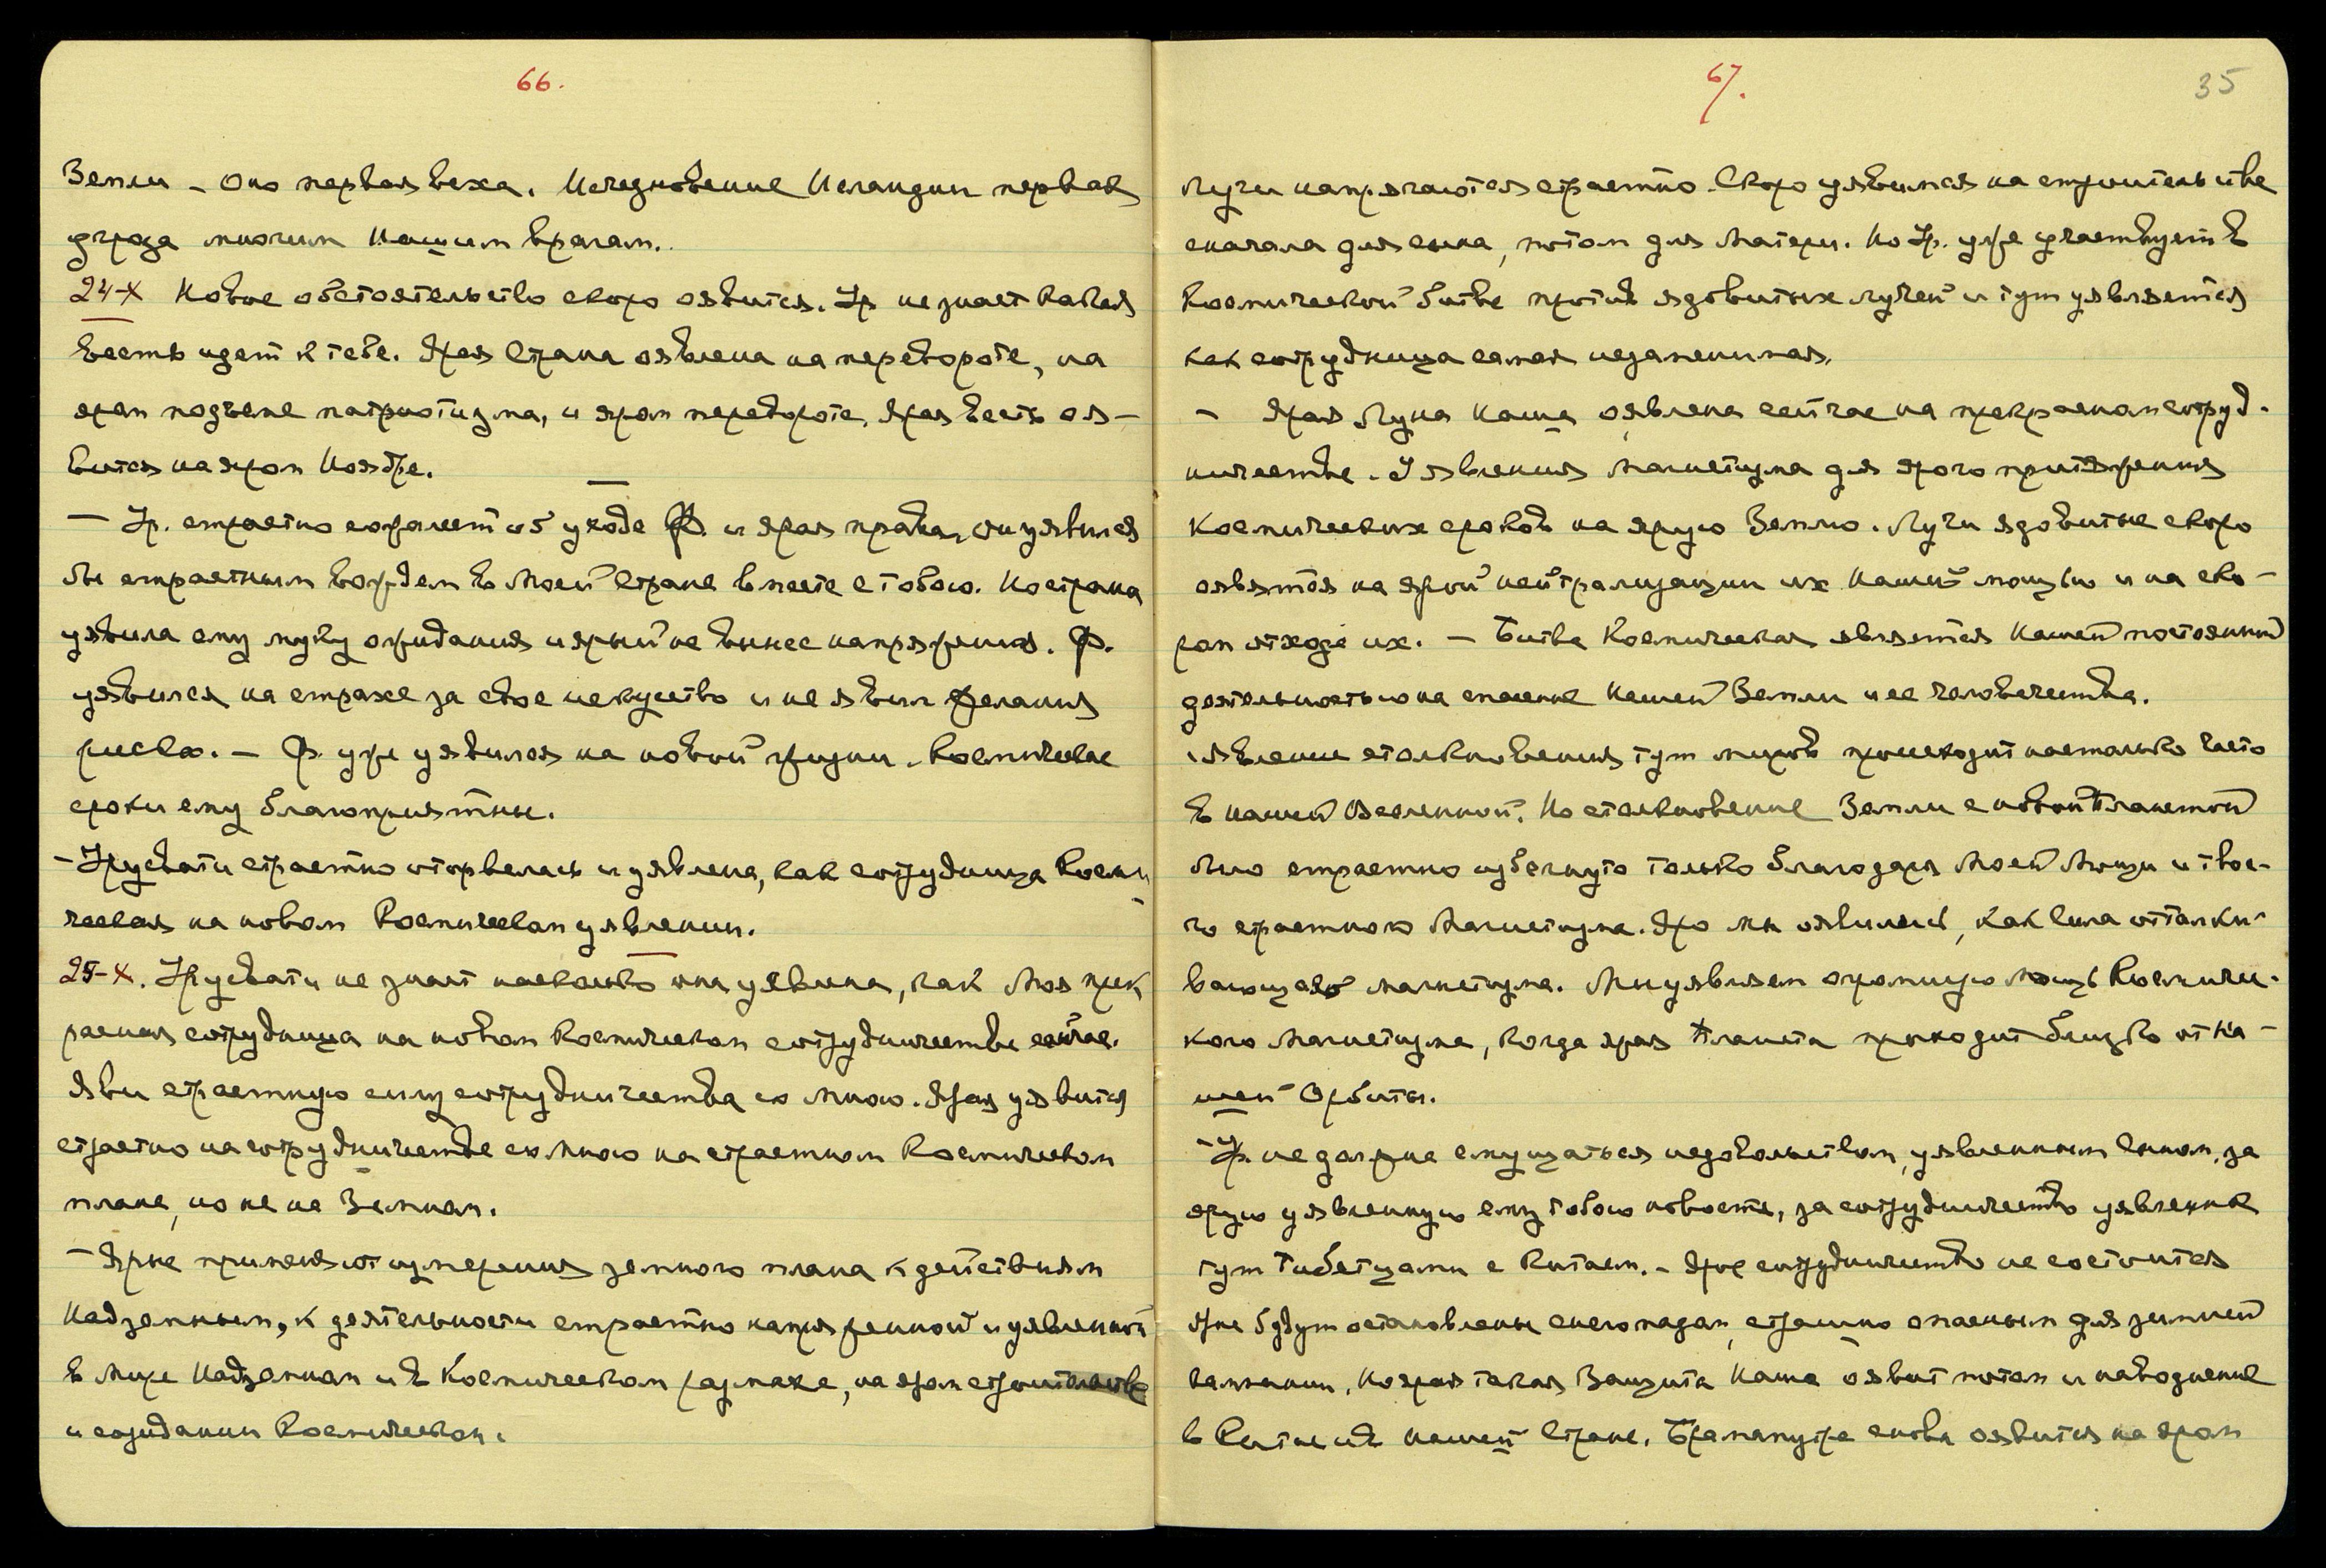 66.
Земли – оно первая веха. Исчезновение Исландии первая
угроза многим Нашим врагам.
24-X Новое обстоятельство скоро оявится. Ур. не знает какая
весть идет к тебе. Ярая Страна оявлена на перевороте, на
яром подъеме патриотизма, и яром перевороте. Ярая весть оя–
вится на яром Ноябре.
– Ур. страстно сожалеет об уходе Ф. и ярая права, он уявился
бы страстным вождем в Моей Стране вместе с тобою. Но страна
уявила ему муку ожидания и ярый не вынес напряжения. Ф.
уявился на страхе за свое искусство и не явил желания
риска. – Ф. уже уявился на новой жизни. Космические
сроки ему благоприятны.
– Урусвати страстно оторвалась и уявлена, как сотрудница Косми–
ческая на новом Космическом уявлении.
25-X. Урусвати не знает насколько она уявлена, как Моя прек
расная сотрудница на новом Космическом сотрудничестве сейчас.
Яви страстную силу сотрудничества со Мною. Ярая уявится
страстно на сотрудничестве со Мною на страстном Космическом
плане, но не на Земном.
– Ярые применяют измерения земного плана к действиям
Надземным, к деятельности страстно напряженной и уявленной
в Мире Надземном и в Космическом размахе, на яром строительстве
и созидании Космическом.
67.
35
Лучи напрягаются страстно. Скоро уявимся на строительстве
сначала для сына, потом для Матери. Но Ур. уже участвует в
Космической битве против ядовитых лучей и тут уявляется
как сотрудница самая незаменимая.
– Ярая Луна Наша оявлена сейчас на прекрасном сотруд.
ничестве. Уявления магнетизма для ярого притяжения
Космических сроков на ярую Землю. Лучи ядовитые скоро
оявятся на ярой нейтрализации их Нашей мощью и на ско–
ром отходе их. – Битва Космическая является Нашей постоянной
деятельностью на спасение Нашей Земли и ее человечества.
Явление столкновения тут миров происходит настолько часто
в нашей Вселенной. Но столкновение Земли с новой Планетой
было страстно избегнуто только благодаря Моей Мощи и твое–
го страстного Магнетизма. Яро мы оявились, как Сила отталки–
вающая магнетизма. Мы уявляем огромную Мощь Космичес–
кого Магнетизма, когда ярая Планета проходит близко от На–
шей Орбиты.
– Ур. не должна смущаться недовольством, уявленным Сыном, за
ярую уявленную ему тобою новость, за сотрудничество уявленное
тут Тибетцами с Китаем. – Ярое сотрудничество не состоится
Яро будут остановлены снегопадом, страшно опасным для зимней
кампании. Но ярая такая Защита Наша оявит потом и наводнение
в Китае и в Нашей Стране. Брамапутра снова оявится на яром